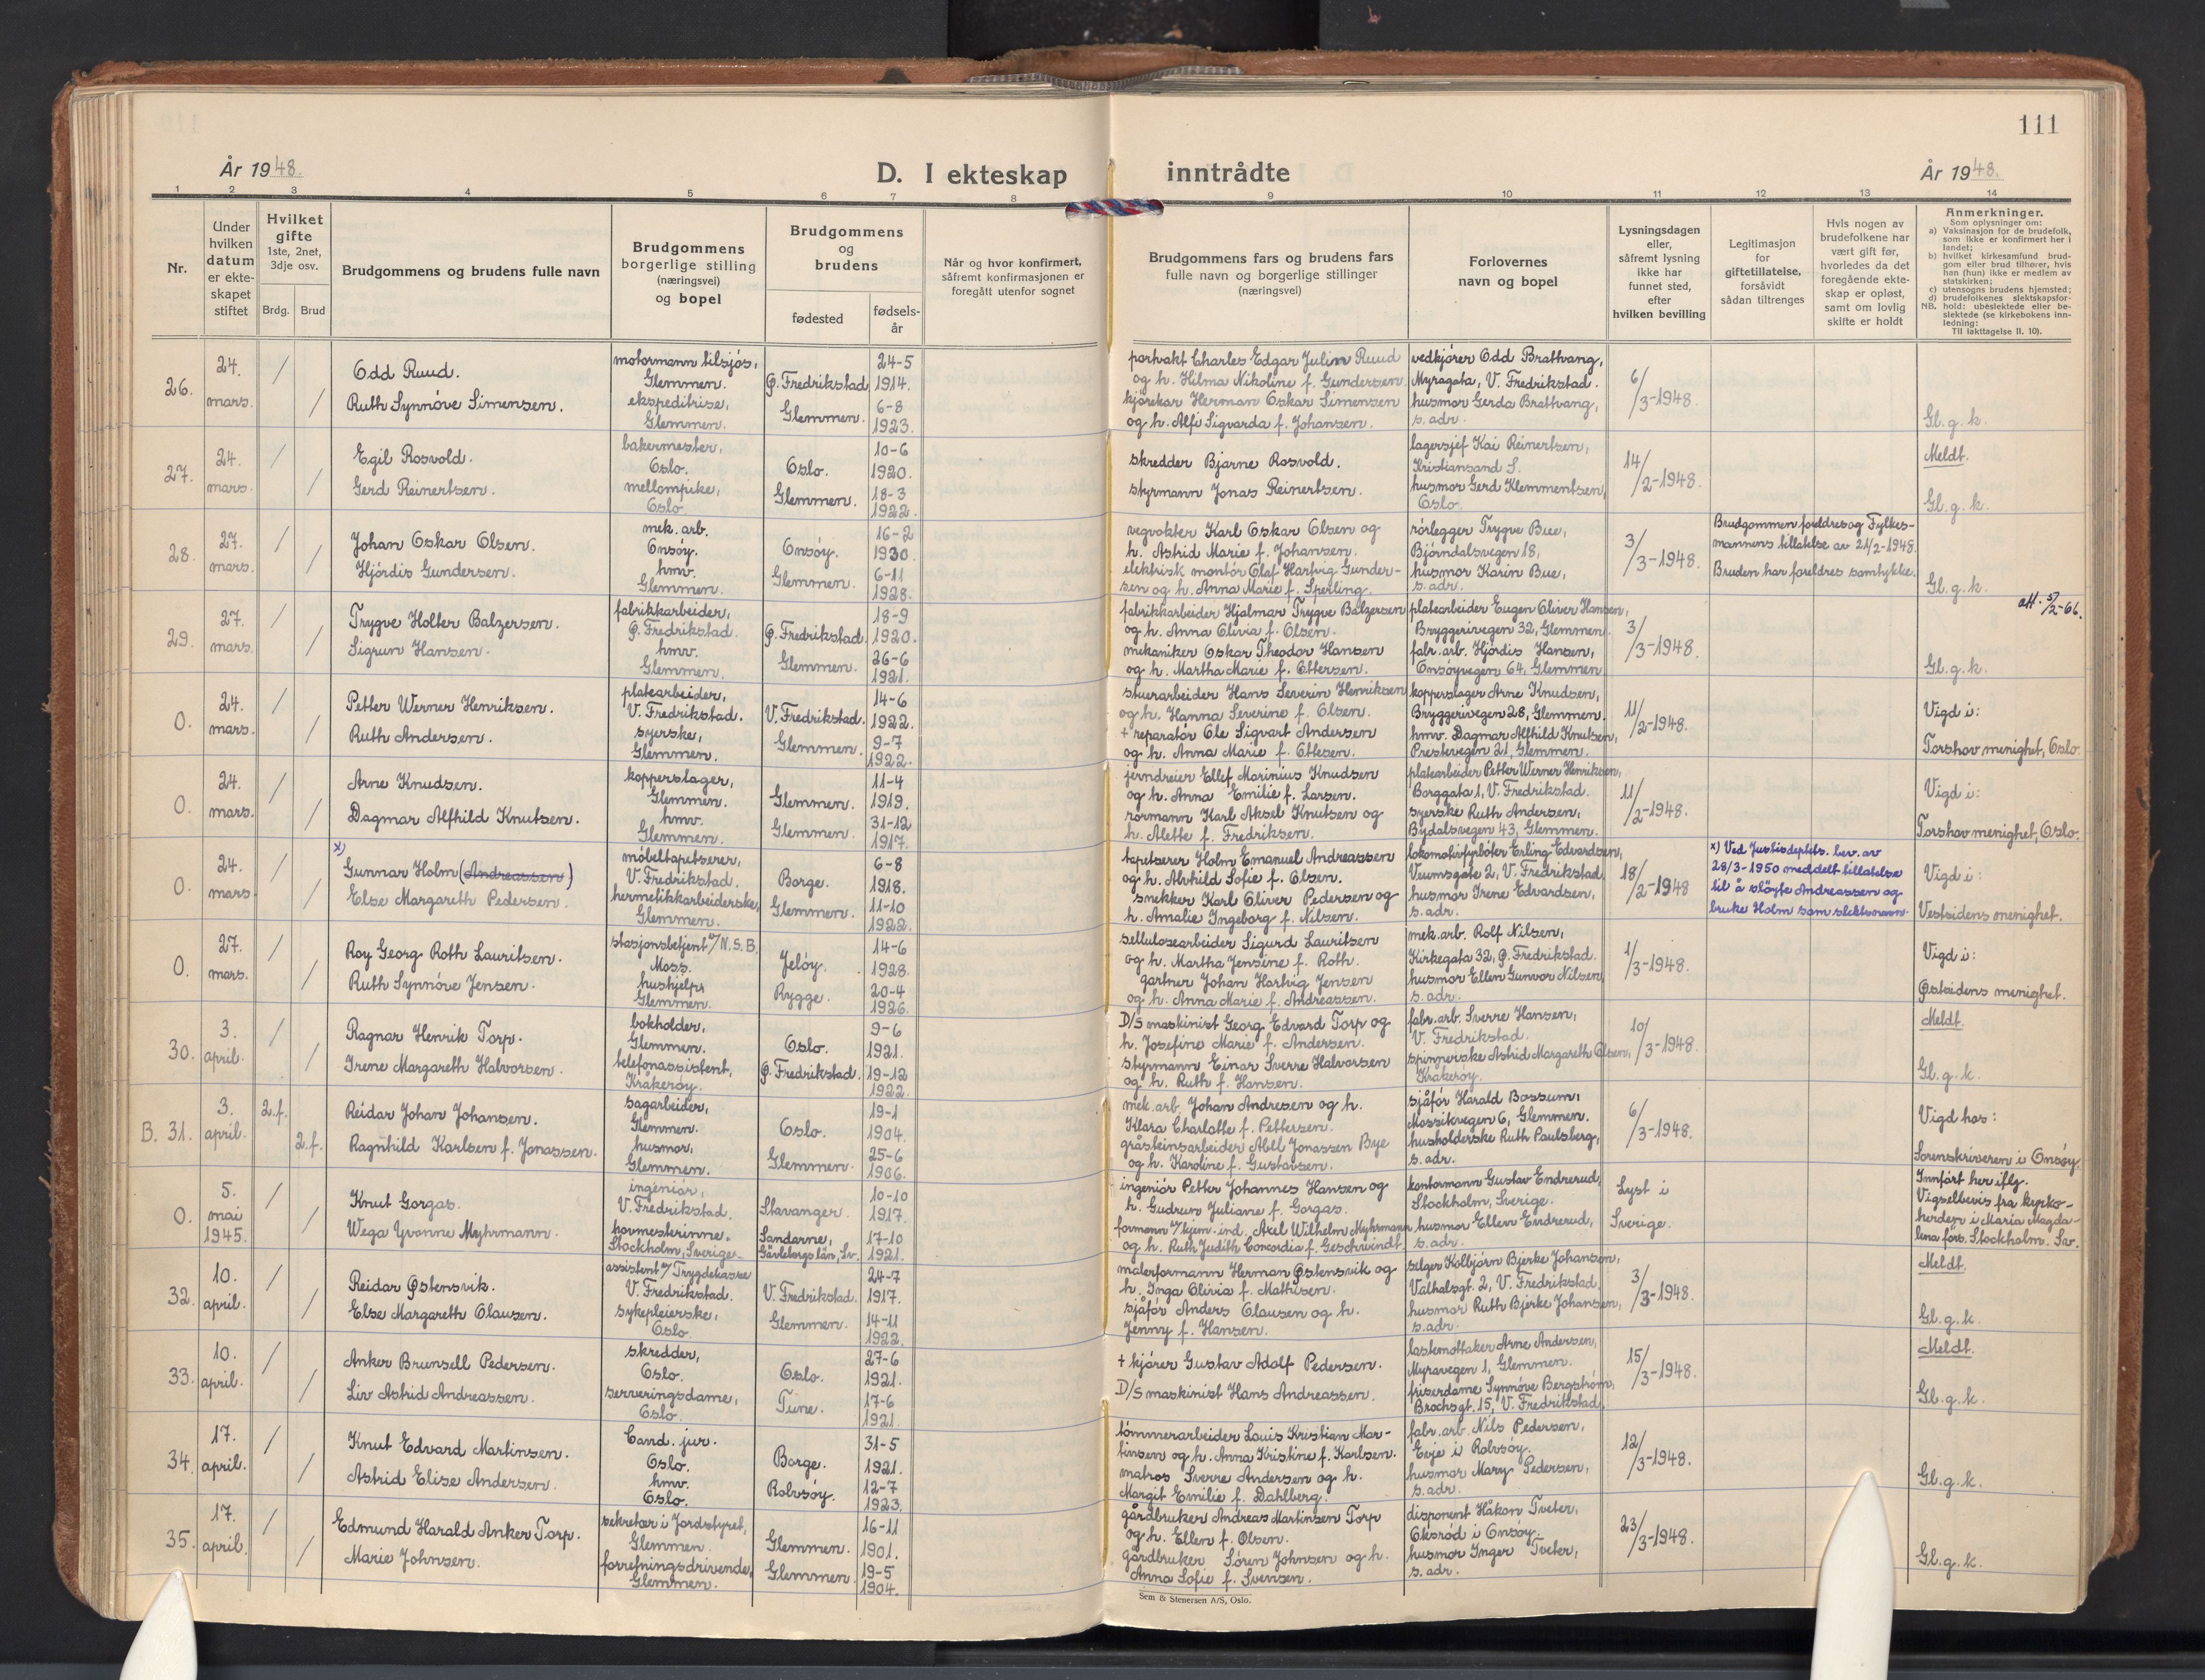 111
År 1948.
D. I ekteskap inntrådte
År 1948.
1 2 3 4 5 6 7 8 9 10 11 12 13 14
Nr.
Under hvilken datum er ekteskapet stiftet
Hvilket gifte
1ste, 2net, 3dje osv.
Brdg. Brud
Brudgommens og brudens fulle navn
Brudgommens borgerlige stilling (næringsvei) og bopel
Brudgommens og brudens
fødested
fødselsår
Når og hvor konfirmert, såfremt konfirmasjonen er foregått utenfor sognet
Brudgommens fars og brudens fars fulle navn og borgerlige stillinger (næringsvei)
Forlovernes navn og bopel
Lysningsdagen eller, såfremt lysning ikke har funnet sted, efter hvilken bevilling
Legitimasjon for giftetillatelse, forsåvidt sådan tiltrenges
Hvis nogen av brudefolkene har vært gift før, hvorledes da det foregående ekteskap er opløst, samt om lovlig skifte er holdt
Anmerkninger.
Som oplysninger om:
a) Vaksinasjon for de brudefolk, som ikke er konfirmert her i landet;
b) hvilket kirkesamfund brudgom eller brud tilhører, hvis han (hun) ikke er medlem av statskirken;
c) utensogns brudens hjemsted;
d) brudefolkenes slektskapsforhold: ubeslektede eller beslektede (se kirkebokens innledning:
NB. Til iakttagelse II. 10).
26. 24. mars. /  /
Odd Ruud.
Ruth Synnöve Simensen.
motormann tilsjøs,
Glemmen.
ekspeditrise,
Glemmen.
Ø. Fredrikstad 24-5 1914.
Glemmen. 6-8 1923.
portvakt Charles Edgar Julin Ruud
og h. Hilma Nikoline f. Gundersen
kjørekar Herman Oskar Simensen
og h. Alfi Sigvarda f. Johansen.
vedkjører Odd Brathvang,
Myragata, V. Fredrikstad.
husmor Gerda Brathvang,
s. adr.
6/3-1948.
Gl. g. k.
27. 24. mars. /  /
Egil Rosvold.
Gerd Reinertsen.
bakermester,
Oslo.
mellompike,
Oslo.
Oslo. 10-6 1920.
Glemmen. 18-3 1922.
skredder Bjarne Rosvold.
styrmann Jonas Reinertsen.
lagersjef Kai Reinertsen,
Kristiansand S.
husmor Gerd Klemmentsen,
Oslo.
14/2-1948.
Meldt.
Gl. g. k.
28. 27. mars. /  /
Johan Oskar Olsen.
Hjördis Gundersen.
mek. arb.
Onsöy.
hmv.
Glemmen.
Onsöy. 16-2 1930.
Glemmen. 6-11 1928.
vegvokter Karl Oskar Olsen og
h. Astrid Marie f. Johansen.
elektrisk montör Olaf Hartvig Gunder-
sen og h. Anna Marie f. Sperling.
rörlegger Trygve Bue,
Björndalsvegen 18,
husmor Karin Bue,
s. adr.
3/3-1948.
Brudgommen foreldres og Fylkes-
mannens tillatelse av 21/2-1948.
Bruden har foreldres samtykke.
Gl. g. k.
29. 27. mars. /  /
Trygve Holter Balzersen.
Sigrun Hansen.
fabrikkarbeider,
Ø. Fredrikstad.
hmv.
Glemmen.
Ø. Fredrikstad. 18-9 1920.
Glemmen. 26-6 1921.
fabrikkarbeider Hjalmar Trygve Balzersen
og h. Anna Olivia f. Olsen.
mekaniker Oskar Theodor Hansen
og h. Martha Marie f. Ottersen.
platearbeider Eugen Oliver Hansen,
Bryggerivegen 32, Glemmen.
fabr. arb. Hjördis Hansen,
Onsöyvegen 64, Glemmen
3/3-1948.
att. 5/2-66.
Gl. g. k.
0. 24. mars. /  /
Petter Werner Henriksen.
Ruth Andersen.
platearbeider,
V. Fredrikstad.
syerske,
Glemmen.
V. Fredrikstad. 14-6 1922.
Glemmen. 9-7 1922.
stuerarbeider Hans Severin Henriksen
og h. Hanna Severine f. Olsen.
+ reparatör Ole Sigvart Andersen
og h. Anna Marie f. Ottesen.
kopperslager Arne Knudsen,
Bryggerivegen 28, Glemmen.
hmv. Dagmar Alfhild Knutsen,
Prestevegen 21, Glemmen.
11/2-1948.
Vigd i:
Torshov menighet, Oslo.
0. 24. mars. /  /
Arne Knudsen.
Dagmar Alfhild Knutsen.
kopperslager,
Glemmen.
hmv.
Glemmen.
Glemmen. 11-4 1919.
Glemmen. 31-12 1917.
jerndreier Ellef Marinius Knudsen
og h. Anna Emilie f. Larsen.
rormann Karl Aksel Knutsen og
h. Alette f. Fredriksen.
platearbeider Petter Werner Henriksen,
Borggata 1, V. Fredrikstad.
syerske Ruth Andersen,
Bydalsvegen 43, Glemmen.
11/2-1948.
Vigd i:
Torshov menighet, Oslo.
0. 24. mars. /  /
x)
Gunnar Holm (Andreassen)
Else Margareth Pedersen.
möbeltapetserer,
V. Fredrikstad.
hermetikkarbeiderske,
Glemmen.
Borge. 6-8 1918.
Glemmen. 11-10 1922.
tapetserer Holm Emanuel Andreassen
og h. Alvhild Sofie f. Olsen.
snekker Karl Oliver Pedersen og
h. Amalie Ingeborg f. Nilsen.
lokomotivfyrböter Erling Edvardsen,
Veumsgate 2, V. Fredrikstad
husmor Irene Edvardsen,
s. adr.
18/2-1948
x) Ved Justisdeptets. bev. av
28/3-1950 meddelt tillatelse
til å slöyfe Andreassen og
bruke Holm som slektsnavn.
Vigd i:
Vestsidens menighet.
0. 27. mars. /  /
Roy Georg Roth Lauritsen.
Ruth Synnöve Jensen.
stasjonsbetjent v/ N.S.B.
Moss.
hushjelp,
Glemmen.
Jelöy. 14-6 1928.
Rygge. 20-4 1926.
sellulosearbeider Sigurd Lauritsen
og h. Martha Jensine f. Roth.
gartner Johan Hartvig Jensen
og h. Anna Marie f. Andreassen.
mek. arb. Rolf Nilsen,
Kirkegata 32, Ø. Fredrikstad.
husmor Ellen Gunvor Nilsen,
s. adr.
1/3-1948.
Vigd i:
Østsidens menighet.
30. 3. april. /  /
Ragnar Henrik Torp.
Irene Margareth Halvorsen.
bokholder,
Glemmen.
telefonassistent,
Kråkeröy.
Oslo. 9-6 1921.
Ø. Fredrikstad. 19-12 1922.
D/S maskinist Georg Edvard Torp og
h. Josefine Marie f. Andersen.
styrmann Einar Sverre Halvorsen
og h. Ruth f. Hansen.
fabr. arb. Sverre Hansen,
V. Fredrikstad.
spinnerske Astrid Margareth Olsen,
Kråkeröy.
10/3-1948.
Meldt.
Gl. g. k.
B. 31. 3. april. 2. f. 2. f.
Reidar Johan Johansen.
Ragnhild Karlsen f. Jonassen.
sagarbeider,
Glemmen.
husmor,
Glemmen.
Oslo. 19-1 1904.
Glemmen. 25-6 1906.
mek. arb. Johan Andresen og h.
Klara Charlotte f. Pettersen.
gråsteinsarbeider Abel Jonassen Bye
og h. Karoline f. Gustavsen.
sjåför Harald Bossum,
Mossikvegen 6, Glemmen.
husholderske Ruth Paulsberg,
s. adr.
6/3-1948.
Vigd hos:
Sorenskriveren i Onsöy.
0. 5. mai 1945. /  /
Knut Gorgas.
Wega Yvonne Myhrmann.
ingeniör,
V. Fredrikstad.
hovmesterinne,
Stockholm, Sverige.
Stavanger. 10-10 1917.
Sandarne, Gävleborgs län, Sv. 17-10 1921.
ingeniör Petter Johannes Hansen og
h. Gudrun Juliane f. Gorgas.
formann v/ kjem. ind. Axel Wilhelm Myhrmann
og h. Ruth Judith Concordia f. Geschwindt.
kontormann Gustav Endrerud,
Stockholm, Sverige.
husmor Ellen Endrerud,
s. adr.
Lyst i
Sverige.
Innfört her iflg.
Vigselbevis fra kyrko-
herden i Maria Magda-
lena förs. Stockholm. Sv.
32. 10. april. /  /
Reidar Østensvik.
Else Margareth Clausen.
assistent v/ Trygdekasse
V. Fredrikstad.
sykepleierske,
Oslo.
V. Fredrikstad. 24-7 1917.
Glemmen. 14-11 1922.
malerformann Herman Østensvik og
h. Inga Olivia f. Mathisen.
sjåför Anders Clausen og h.
Jenny f. Hansen.
selger Kolbjörn Bjerke Johansen,
Valhalsgt. 2, V. Fredrikstad.
husmor Ruth Bjerke Johansen,
s. adr.
3/3-1948.
Meldt.
Gl. g. k.
33. 10. april. /  /
Anker Brunsell Pedersen.
Liv Astrid Andreassen.
skredder,
Oslo.
serveringsdame,
Oslo.
Oslo. 27-6 1921.
Tune. 17-6 1921.
+ kjörer Gustav Adolf Pedersen.
D/S maskinist Hans Andreassen.
lastemottaker Arne Andersen,
Myravegen 1, Glemmen.
friserdame Synnöve Bergström,
Brochsgt. 15, V. Fredrikstad.
15/3-1948.
Meldt.
Gl. g. k.
34. 17. april. /  /
Knut Edvard Martinsen.
Astrid Elise Andersen.
Cand. jur.
Oslo.
hmv.
Oslo.
Borge. 31-5 1921.
Rolvsöy. 12-7 1923.
tömmerarbeider Louis Kristian Mar-
tinsen og h. Anna Kristine f. Karlsen.
matros Sverre Andersen og h.
Margit Emilie f. Dahlberg.
fabr. arb. Nils Pedersen,
Evje i Rolvsöy.
husmor Mary Pedersen,
s. adr.
12/3-1948.
Gl. g. k.
35. 17. april. /  /
Edmund Harald Anker Torp.
Marie Johnsen.
sekretær i Jordstyret,
Glemmen.
forretningsdrivende,
Glemmen.
Glemmen. 16-11 1901.
Glemmen. 19-5 1904.
gårdbruker Andreas Martinsen Torp
og h. Ellen f. Olsen.
gårdbruker Sören Johnsen og h.
Anna Sofie f. Svensen.
disponent Håkon Tveter,
Oksröd i Onsöy.
husmor Inger Tveter,
s. adr.
23/3-1948.
Gl. g. k.
Sem & Stenersen A/S, Oslo.